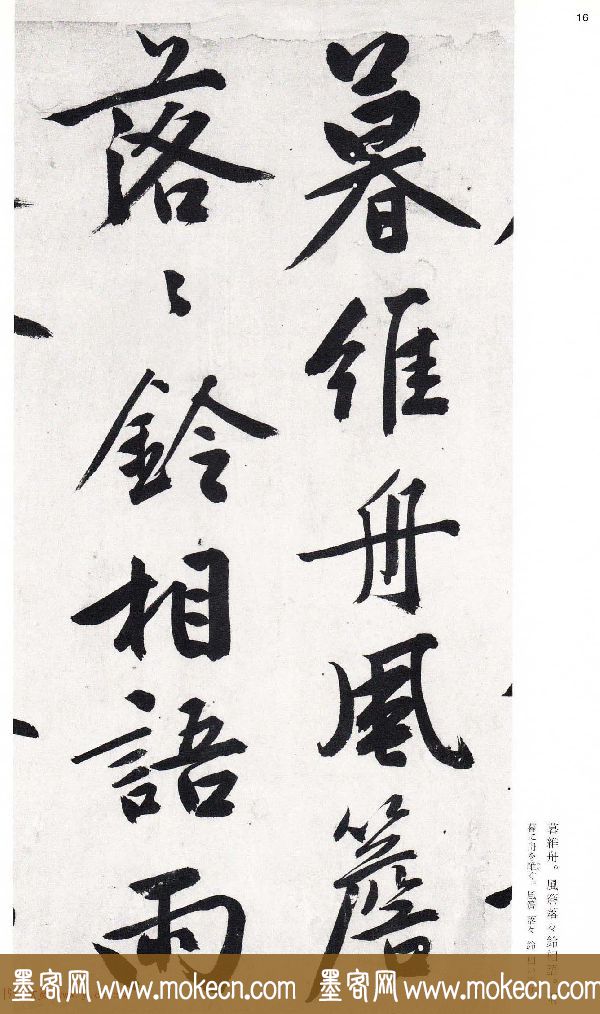 16
暮維舟風簷
落々鈴相語雨
暮維舟。風簷落々鈴相語
暮に舟を維ぐ。風簷落々鈴相
墨客网 www.mokecn.com 墨客网 www.mokecn.com